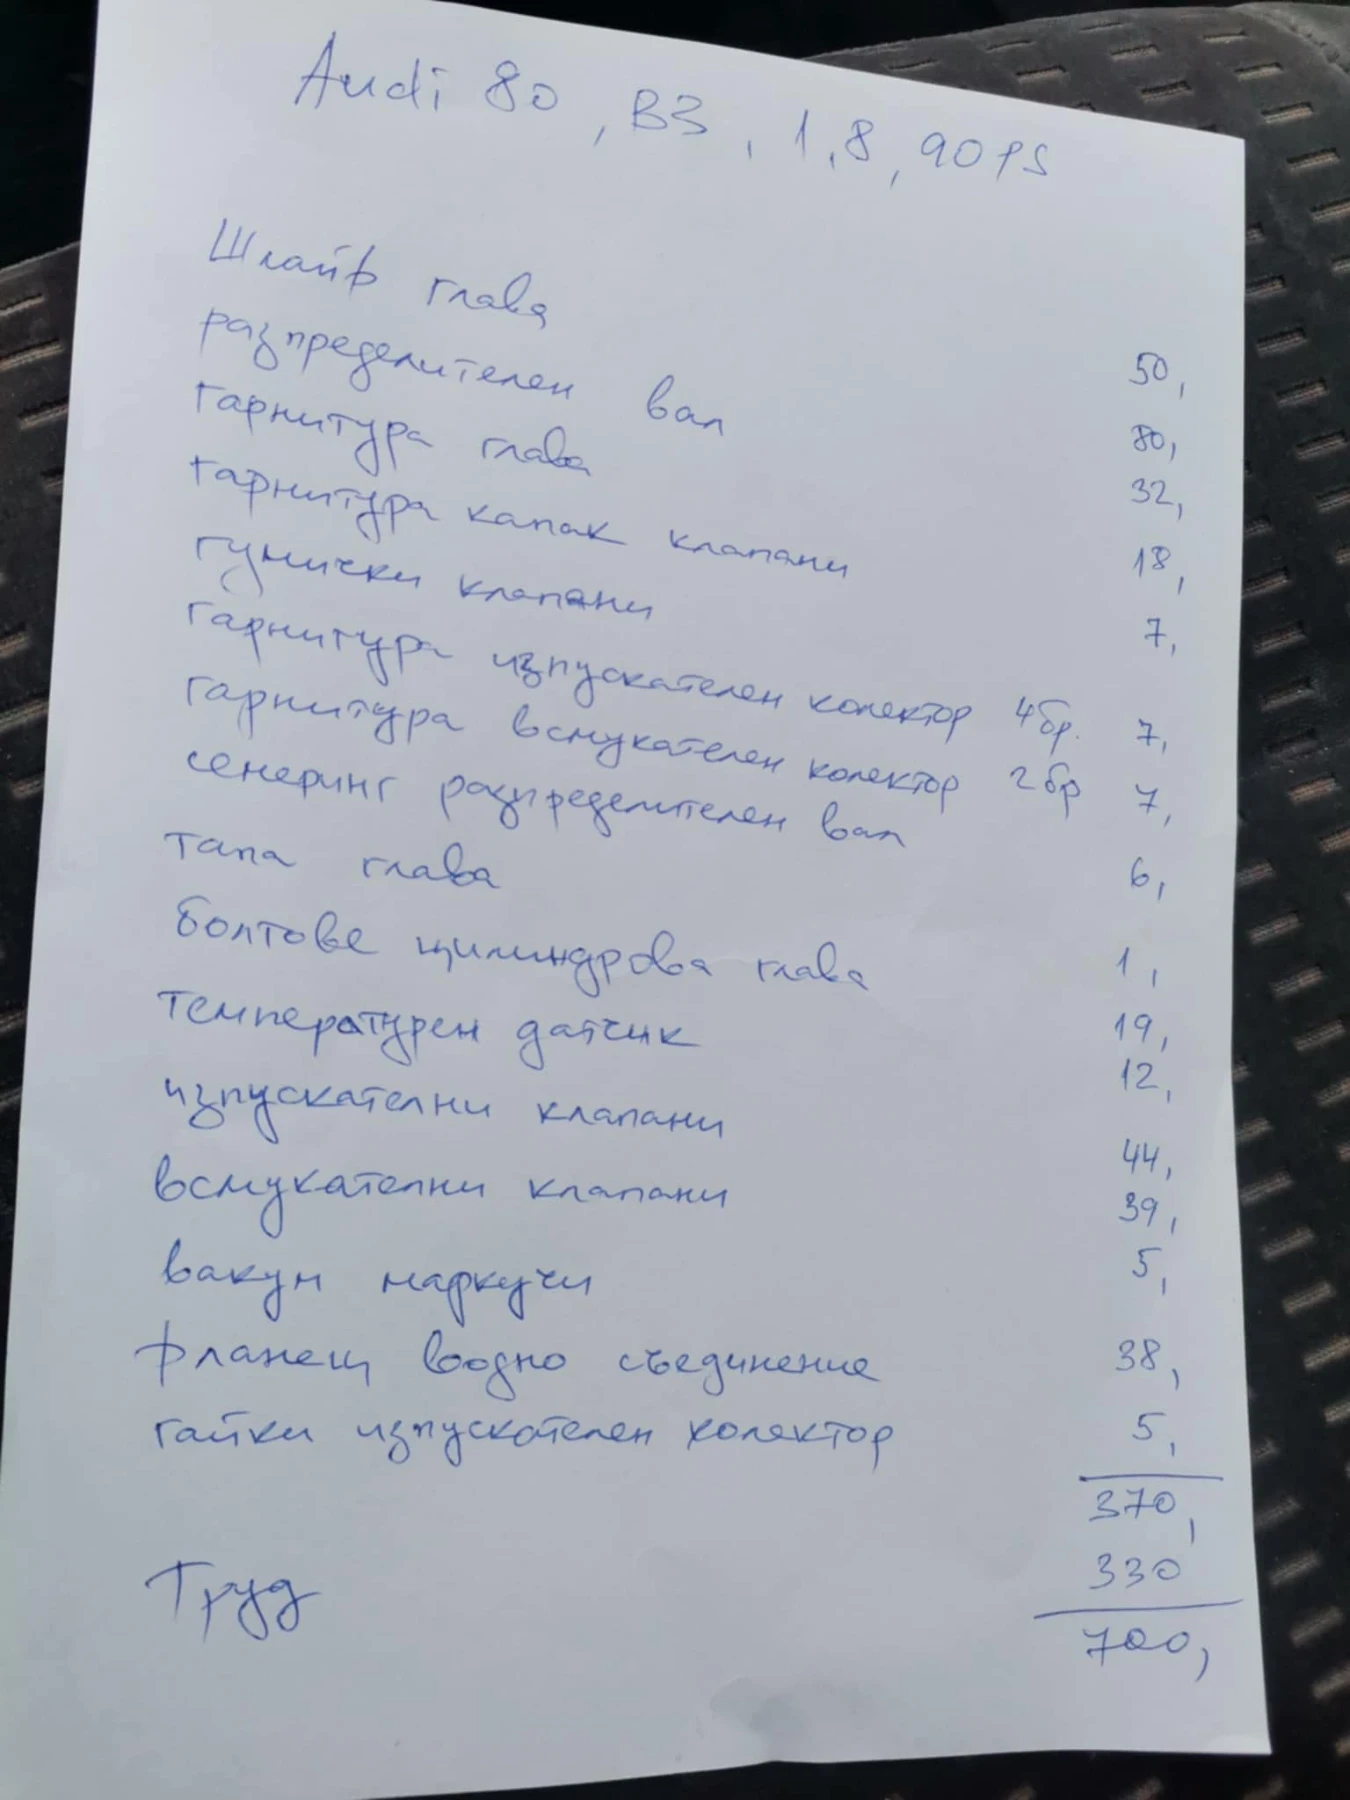 Audi 80, B3, 1,8, 90 PS
Шлайф глава 50,
разпределителен вал 80,
гарнитура глава 32,
гарнитура капак клапани 18,
гумички клапани 7,
гарнитура изпускателен колектор 4бр. 7,
гарнитура всмукателен колектор 2бр 7,
семеринг разпределителен вал 6,
тапа глава 1,
болтове цилиндрова глава 19,
температурен датчик 12,
изпускателни клапани 44,
всмукателни клапани 39,
вакум маркучи 5,
фланец водно съединение 38,
гайки изпускателен колектор 5,
370,
Труд 330
700,